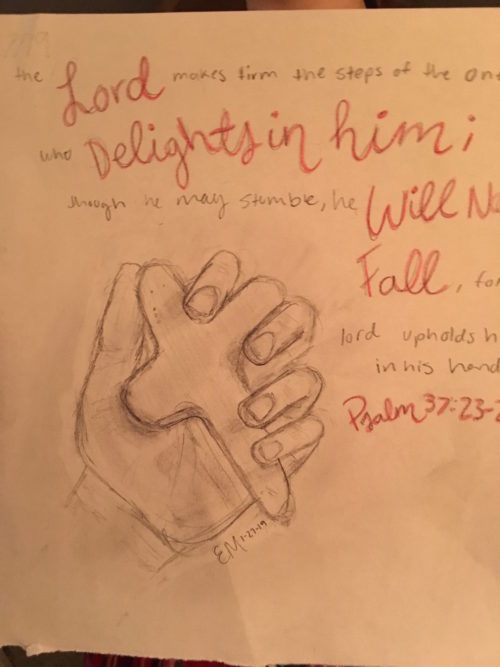 the Lord makes firm the steps of the one
who Delights in him;
though he may stumble, he Will No
Fall, for
lord upholds h
in his hand
Psalm 37:23-2
EM 1-27-19